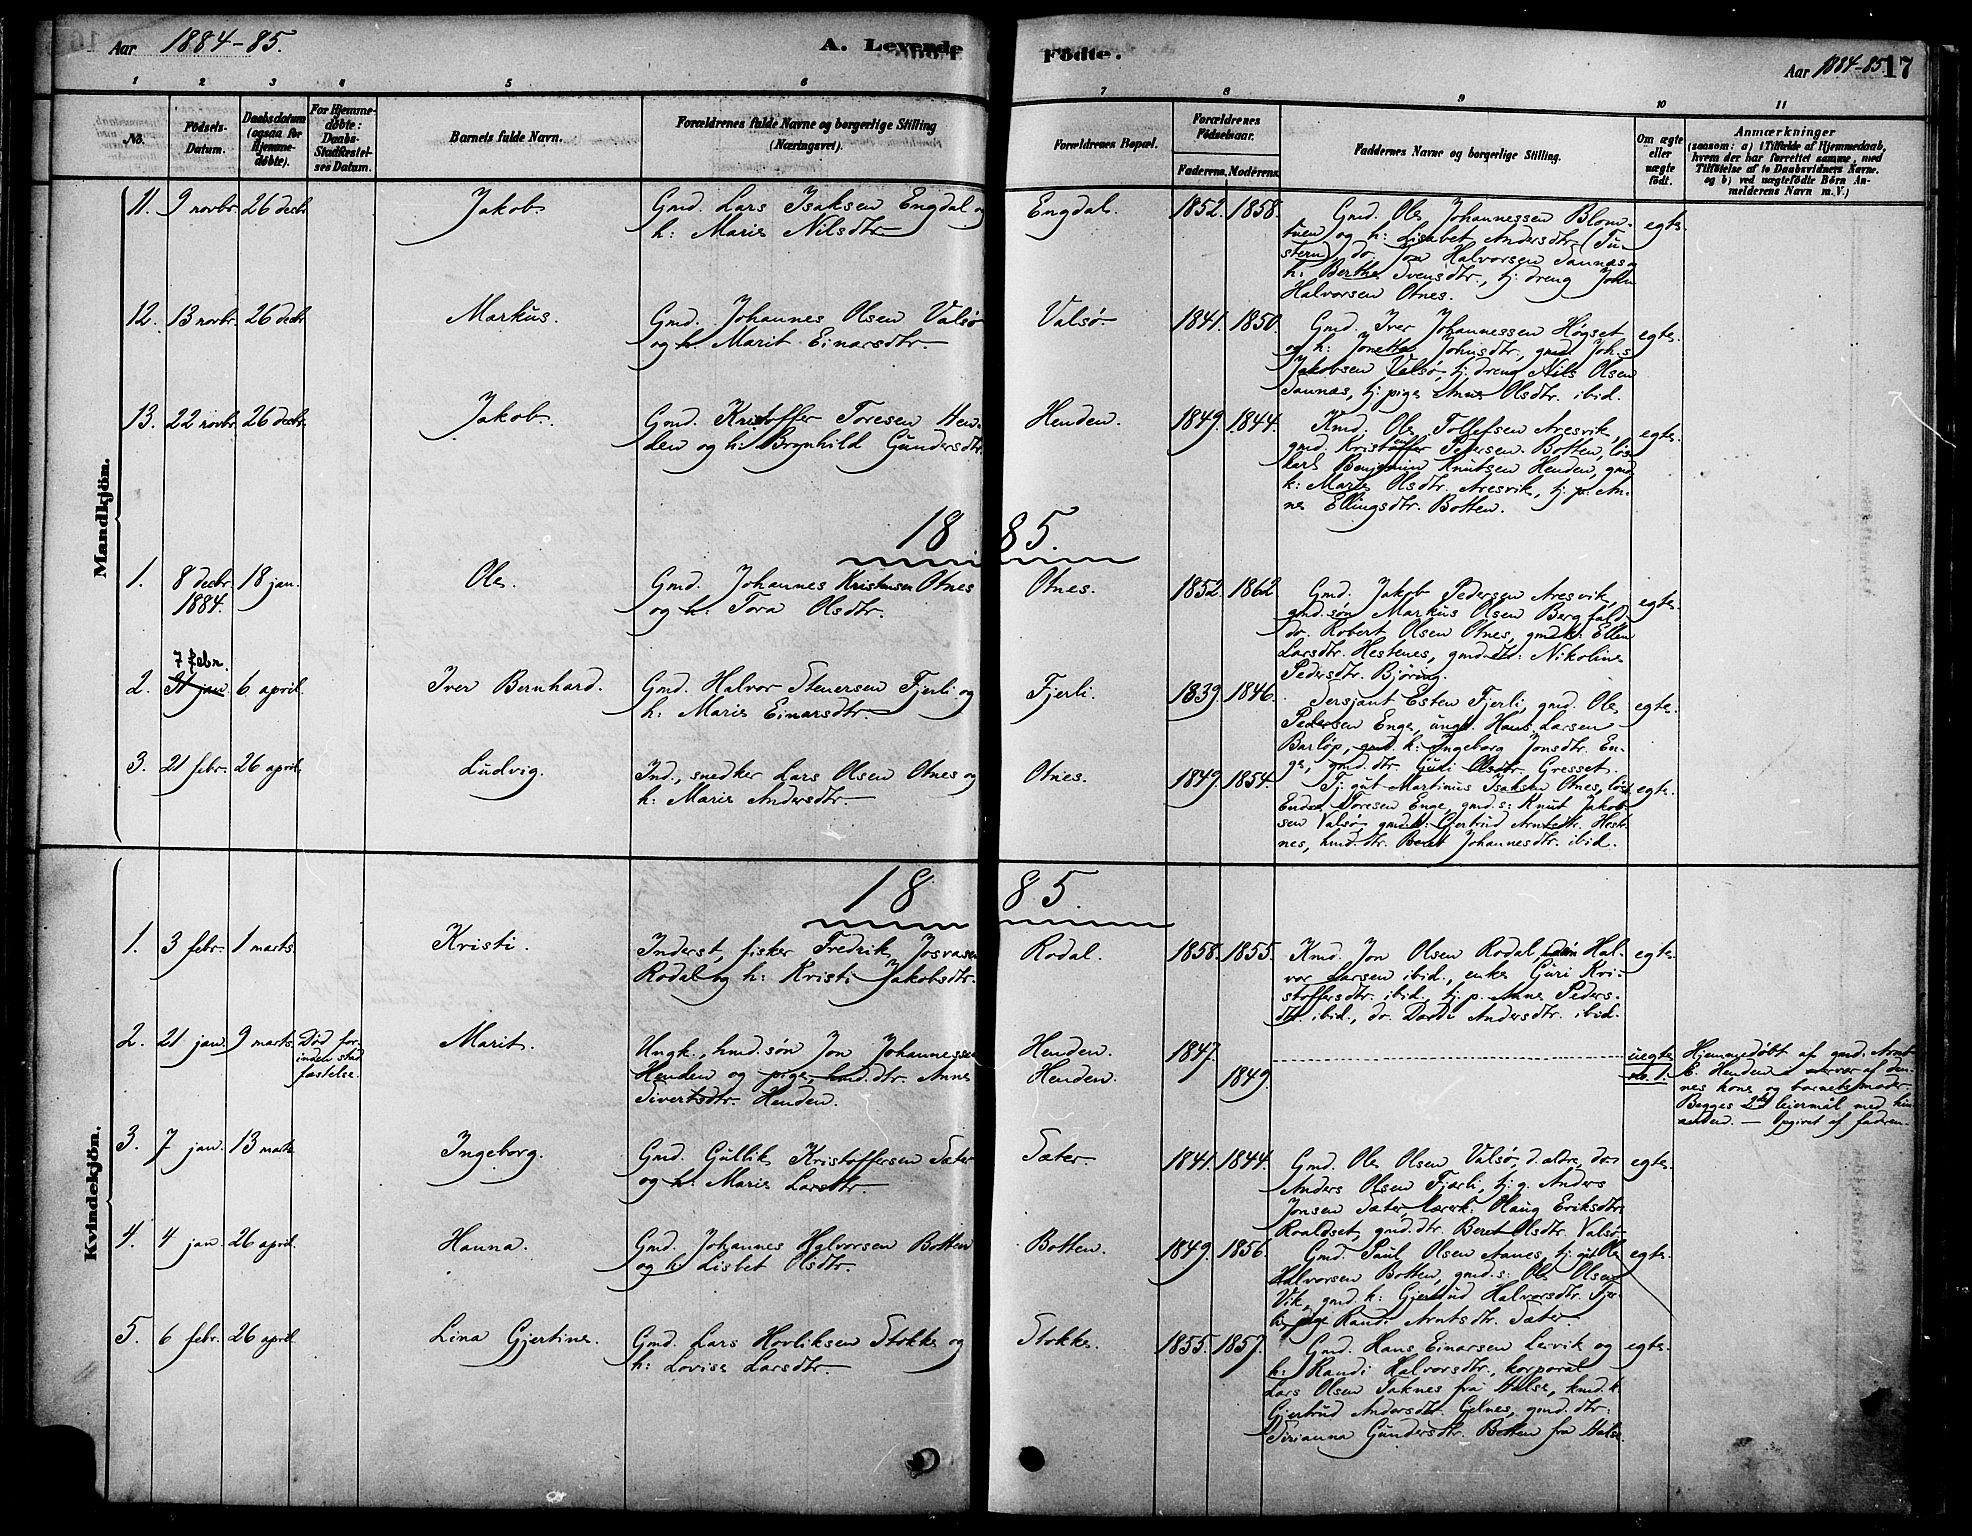 Aar 1884-85.
A. Levende Födte.
Aar 1884-85
17
1 2 3 4 5 6 7 8 9 10 11
No.
Födsels-
Datum.
Daabsdatum
(ogsaa for
Hjemme-
döbte).
For Hjemme-
døbte:
Daabs-
Stadfæstel-
ses Datum.
Barnets fulde Navn.
Forældrenes fulde Navne og borgerlige Stilling
(Næringsvei).
Forældrenes Bopæl.
Forældrenes
Födselsaar.
Faderens. Moderens.
Faddernes Navne og borgerlige Stilling.
Om ægte
eller
uægte
födt.
Anmærkninger
(saasom: a) i Tilfælde af Hjemmedaab,
hvem der har forrettet samme, med
Tilföielse af to Daabsvidners Navne.
og b) ved uægtefödte Börn An-
melderens Navn m. V.)
Mandkjön.
11. 9 novbr. 26 decbr. Jakob. Gmd. Lars Isaksen Engdal og
h: Marie Nilsdtr.
Engdal. 1852. 1858.
Gmd. Ole Johannessen Blom-
tuen og h: Lisabet Andersdtr. (Tu-
stern), do. Jon Halvorsen Saunæs
h: Berthe Svensdtr., tj. dreng John
Halvorsen Otnes.
egte.
12. 13 novbr. 26 decbr Markus. Gmd. Johannes Olsen Valsø
og h. Marit Einarsdtr.
Valsø. 1841. 1850.
Gmd. Iver Johannessen Høgset
og h: Jonetta Johnsdtr., gmd. Joh:s
Jakobsen Valsø, tj. dreng Nils Olsen
Saunæs, tj. pige Anne Olsdtr. ibid.
egte.
13. 22 novbr. 26 decbr. Jakob. Gmd. Kristoffer Toresen Hen-
den og h: Brynhild Gundersdtr.
Henden. 1849. 1844.
Kmd. Ole Tollefsen Aresvik,
gmd. Kristoffer Pedersen Botten, løs-
karl Benjamin Knutsen Henden, gmd.
k: Marie Olsdtr. Aresvik, tj. p. An-
ne Ellingsdtr. Botten.
egte.
1885.
1. 8 decbr. 1884. 18 jan. Ole. Gmd. Johannes Kristensen Otnes
og h: Tora Olsdtr.
Otnes. 1852. 1862
Gmd. Jakob Pedersen Aresvik,
gmd. søn Markus Olsen Bergfald,
do. Robert Olsen Otnes, gmd.k: Ellen
Larsdtr. Hestenes, gmd. dtr: Nikoline
Pedersdtr. Bjøring.
egte.
7 febr.
2. 31 jan. 6 april. Iver Bernhard. Gmd. Halvor Steuersen Fjerli og
h: Marie Einarsdtr.
Fjerli. 1839. 1846.
Sersjant Esten Fjerli, gmd. Ole
Pedersen Enge, ungk. Hans Larsen
Barløp, gmd. k: Ingeborg Jonsdtr. En-
ge, gmd. dtr. Guri Olsdtr. Gresset.
egte.
3. 21 febr. 26 april. Ludvig. Ind., snedker Lars Olsen Otnes og
h: Marie Andersdtr.
Otnes. 1849. 1854.
Tj. gut Martinus Isaksen Otnes, løsk.
Endre Toresen Enge, gmd. s: Knut Jakob-
sen Valsø, gmd.k: Gjertrud Arntsdtr. Hest-
nes, hmd. dtr. Beret Johannesdtr. ibid.
egte.
Kvindekjön.
1885.
1. 3 febr. 1 marts. Kristi. Inderst, fisker Fredrik Josvasen
Rodal og h: Kristi Jakobsdtr.
Rodal. 1858. 1855.
Kmd. Jon Olsen Rodal, Hal-
vor Larsen ibid., enke Guri Kri-
stoffersdtr. ibid., tj. p. Anne Peders-
dtr. ibid., do. Dordi Andersdtr. ibid.
egte.
2. 21 jan. 9 marts. Død for-
inden stad
fæstelse.
Marit. Ungk., hmd. søn Jon Johannessen
Henden og pige, hmd. dtr. Anne
Sivertsdtr. Henden.
Henden. 1847.
Henden. 1849.
uegte
Hjemmedøbt af gmd. Arnt
E. Henden i nærvær af den-
nes kone og barnets moder.
Begges 2det leiermål med hin-
anden. — Opgivet af faderen.
3. 7 jan. 13 marts. Ingeborg. Gmd. Gullik Kristoffersen Sæter
og h: Marie Larsdtr.
Sæter. 1841. 1844.
Gmd. Ole Olsen Valsø, d. ældre, do.
Anders Olsen Fjærli, tj. g. Anders
Jonsen Sæter, lærerk. Olaug Eriksdtr.
Roaldset, gmd. dtr. Beret Olsdtr. Valsø.
egte.
4. 4 jan. 26 april. Hanna. Gmd. Johannes Halvorsen Botten
og h. Lisbet Olsdtr.
Botten. 1849. 1856.
Gmd. Paul Olsen Aanes, tj. gut Ole
Halvorsen Botten, gmd. s: Ole Olsen
Vik, gmd. k: Gjertrud Halvorsdtr. Fjer-
li, pige Randi Arntsdtr. Sæter.
egte.
5. 6 febr. 26 april. Lina Gjertine. Gmd. Lars Hovliksen Stokke og
h: Lovise Larsdtr.
Stokke. 1855. 1857.
Gmd. Hans Einarsen Lervik og
h: Randi Halvorsdtr., korporal
Lars Olsen Taknes fra Halse, kmd. k.
Gjertrud Andersdtr. Gelnes, gmd. dtr:
Sirianna Gundersdtr. Botten fra Halse.
egte.